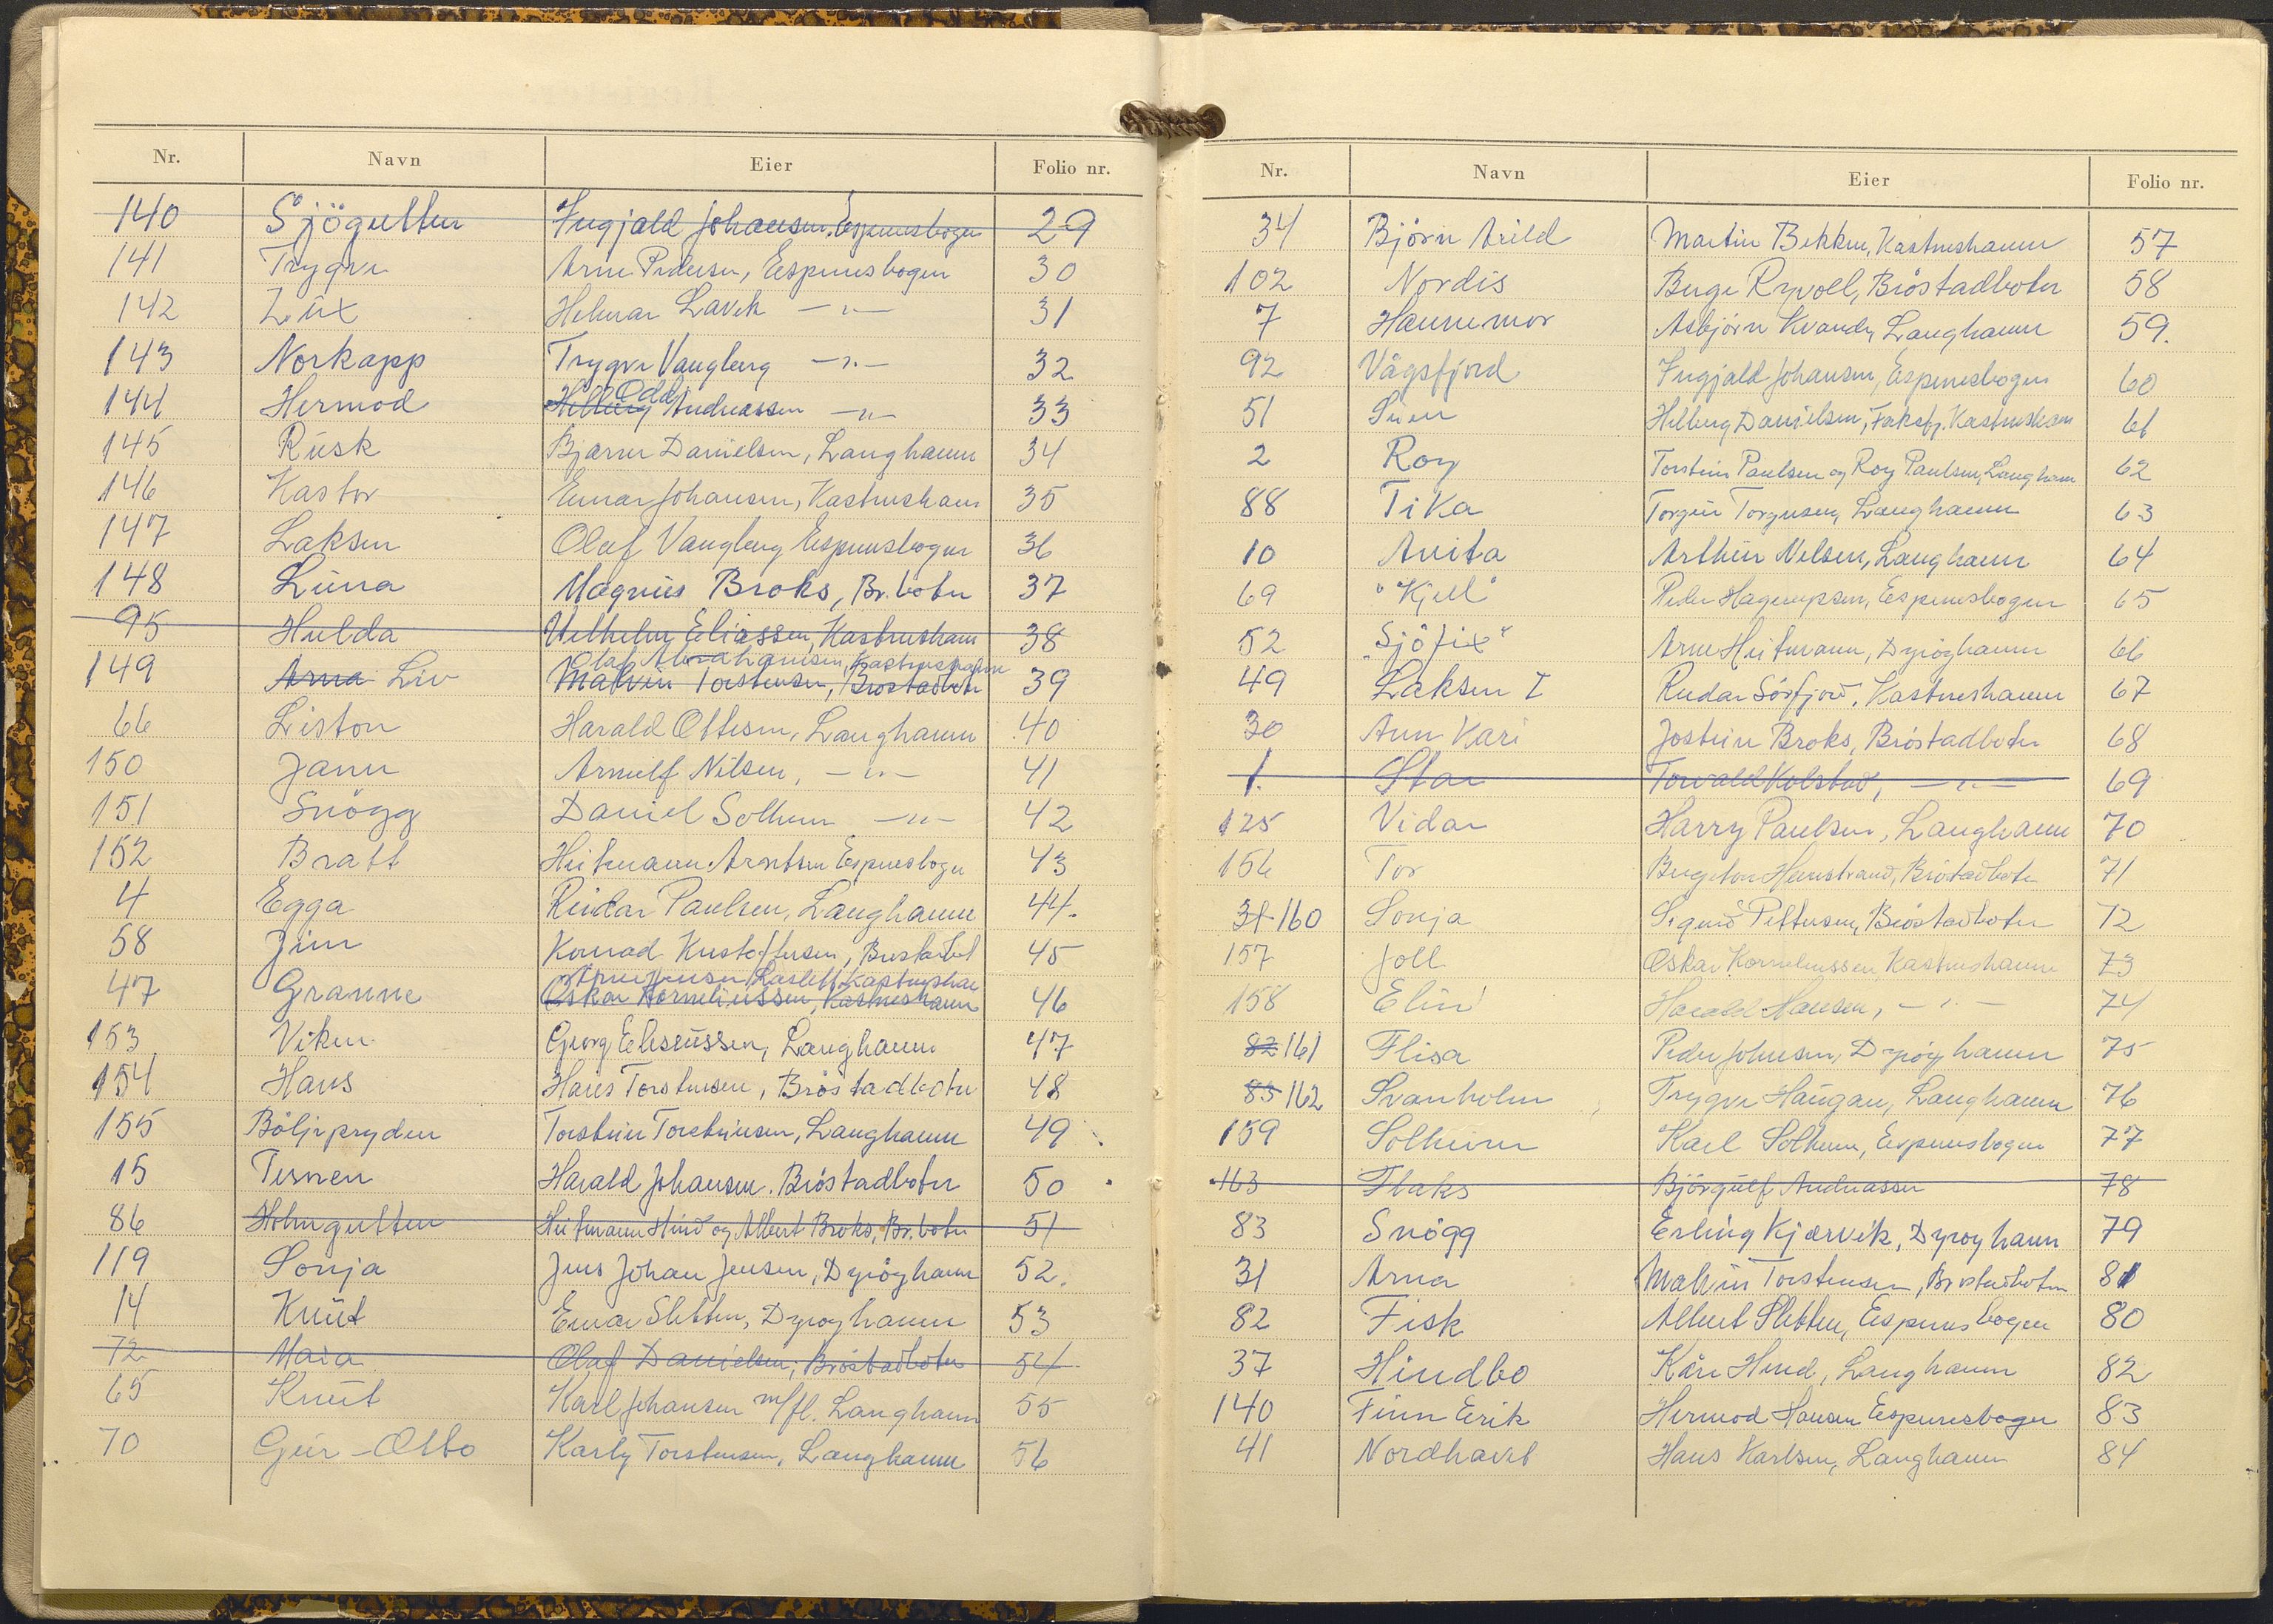 Nr. Navn Eier Folio nr.
140 Sjøgutten Ingjald Johansen, Espenesbogen 29
141 Trygve Arne Pedersen, Espenesbogen 30
142 Lux Helmar Lavik —"— 31
143 Norkapp Trygve Vangberg —"— 32
Odd
144 Hermod Helberg Andreassen —"— 33
145 Rusk Bjarne Danielsen, Langhamn 34
146 Kastor Einar Johansen, Kastneshamn 35
147 Laksen Olaf Vangberg Espenesbogen 36
148 Luna Magnus Broks, Br.botn 37
95 Hulda Vilhelm Eliassen, Kastnesham 38
Olaf Abrahamsen, Kastneshamn
149 Arna Liv Malvin Torstensen, Brøstadbotn 39
66 Liston Harald Ottesen, Langhamn 40
150 Jann Arnulf Nilsen, —"— 41
151 Snögg Daniel Solheim —"— 42
152 Bratt Heitmann Arntsen Espenesbogen 43
4 Egga Reidar Paulsen, Langhamn 44.
58 Jim Konrad Kristoffersen, Brøstadbot 45
Kastneshav
47 Granne Oskar Korneliussen, Kastneshamn 46
153 Viken Georg Eliseussen, Langhamn 47
154 Hans Hans Torstensen, Bröstadbotn 48
155 Böljepryden Torstein Torsteinsen, Langhamn 49
15 Ternen Harald Johansen. Bröstadbotn 50
86 Holmgutten Heitmann Hind og Albert Broks, Br.botn 51
119 Sonja Jens Johan Jensen, Dyröyhamn 52.
14 Knut Einar Sletten, Dyröyhamn 53
72 Maia Olaf Danielsen, Bröstadbotn 54
65 Knut Karl Johansen m/fl. Langhamn 55
70 Geir-Otto Karly Torstensen, Langhamn 56
Nr. Navn Eier Folio nr.
34 Björn Arild Martin Bekken, Kastneshamn 57
102 Nordis Birger Ryvoll, Bröstadbotn 58
7 Hannemor Asbjörn Kvande, Langhamn 59.
92 Vågsfjord Ingjald Johansen, Espenesbogen 60
51 Svein Helberg Danielsen, Faksfj. Kastnesham 61
2 Roy Torstein Paulsen og Roy Paulsen, Langhamn 62
88 TiKa Torgeir Torgersen, Langhamn 63
10 Anita Arthur Nilsen, Langhamn 64
69 "Kjell" Peder Hagerupsen, Espenesbogen 65
52 "Sjöfix" Arne Heitmann, Dyröyhamn 66
49 Laksen I Reidar Sörfjord. Kastneshamn 67
30 Ann Kari Jostein Broks, Bröstadbotn 68
1. Star Torvald Kolstad, —"— 69
125 Vidar Harry Paulsen, Langhamn 70
156 Tor Bergeton Hemstrand, Bröstadbotn 71
31 160 Sonja Sigurd Pettersen, Bröstadbotn 72
157 Joll Oskar Korneliussen Kastneshamn 73
158 Elin Harald Hansen, —"— 74
82 161 Flisa Peder Johnsen, Dyröyhamn 75
85 162 Svanholm Trygve Haugan, Langhamn 76
159 Solheim Karl Solheim, Espenesbogen 77
163 Flaks Björgulf Andreassen 78
83 Snögg Erling Kjærvik, Dyröyhamn 79
31 Arna Malvin Torstensen, Brøstadbotn 81
82 Fisk Albert Sletten, Espenesbogen 80
37 Hindbo Kåre Hind, Langhamn 82
140 Finn Erik Hermod Hansen Espenesbogen 83
41 Nordhavet Hans Karlsen, Langhamn 84